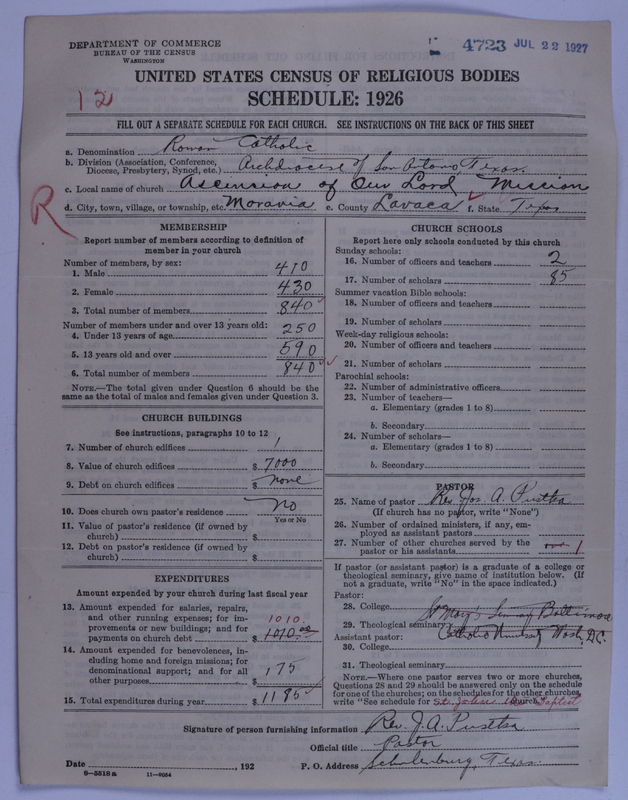 DEPARTMENT OF COMMERCE
BUREAU OF THE CENSUS
WASHINGTON
4723 JUL 22 1927
UNITED STATES CENSUS OF RELIGIOUS BODIES
12
SCHEDULE: 1926
FILL OUT A SEPARATE SCHEDULE FOR EACH CHURCH. SEE INSTRUCTIONS ON THE BACK OF THIS SHEET
a. Denomination Roman Catholic
b. Division (Association, Conference, Diocese, Presbytery, Synod, etc.) Archdiocese of San Antonio, Texas.
c. Local name of church Ascension of Our Lord, Mission
R
d. City, town, village, or township, etc. Moravia e. County Lavaca f. State Texas
MEMBERSHIP
Report number of members according to definition of
member in your church
Number of members, by sex:
1. Male 410
2. Female 430
3. Total number of members 840
Number of members under and over 13 years old:
4. Under 13 years of age 250
5. 13 years old and over 590
6. Total number of members 840
NOTE.—The total given under Question 6 should be the
same as the total of males and females given under Question 3.
CHURCH BUILDINGS
See instructions, paragraphs 10 to 12
7. Number of church edifices 1
8. Value of church edifices $ 7000
9. Debt on church edifices $ none
10. Does church own pastor's residence? No
Yes or No
11. Value of pastor's residence (if owned by
church) $
12. Debt on pastor's residence (if owned by
church) $
EXPENDITURES
Amount expended by your church during last fiscal year
13. Amount expended for salaries, repairs,
and other running expenses; for im-
provements or new buildings; and for
payments on church debt 1010. $ 1010.00
14. Amount expended for benevolences, in-
cluding home and foreign missions; for
denominational support; and for all
other purposes $ 175
15. Total expenditures during year $ 1185
CHURCH SCHOOLS
Report here only schools conducted by this church
Sunday schools:
16. Number of officers and teachers 2
17. Number of scholars 85
Summer vacation Bible schools:
18. Number of officers and teachers
19. Number of scholars
Week-day religious schools:
20. Number of officers and teachers
21. Number of scholars
Parochial schools:
22. Number of administrative officers
23. Number of teachers—
a. Elementary (grades 1 to 8)
b. Secondary
24. Number of scholars—
a. Elementary (grades 1 to 8)
b. Secondary
PASTOR
25. Name of pastor Rev. Jos. A. Pustka
(If church has no pastor, write "None")
26. Number of ordained ministers, if any, em-
ployed as assistant pastors
27. Number of other churches served by the
pastor or his assistants one 1
If pastor (or assistant pastor) is a graduate of a college or
theological seminary, give name of institution below. (If
not a graduate, write "No" in the space indicated.)
Pastor:
28. College St Mary's Seminary Baltimore
29. Theological seminary Catholic University Wash. D.C.
Assistant pastor:
30. College
31. Theological seminary
NOTE.—Where one pastor serves two or more churches,
Questions 28 and 29 should be answered only on the schedule
for one of the churches; on the schedules for the other churches,
write "See schedule for St. John the Baptist church"
Signature of person furnishing information Rev. J. A. Pustka
Official title Pastor
Date , 192 P. O. Address Schulenburg, Texas.
8—5518 a 11—9054